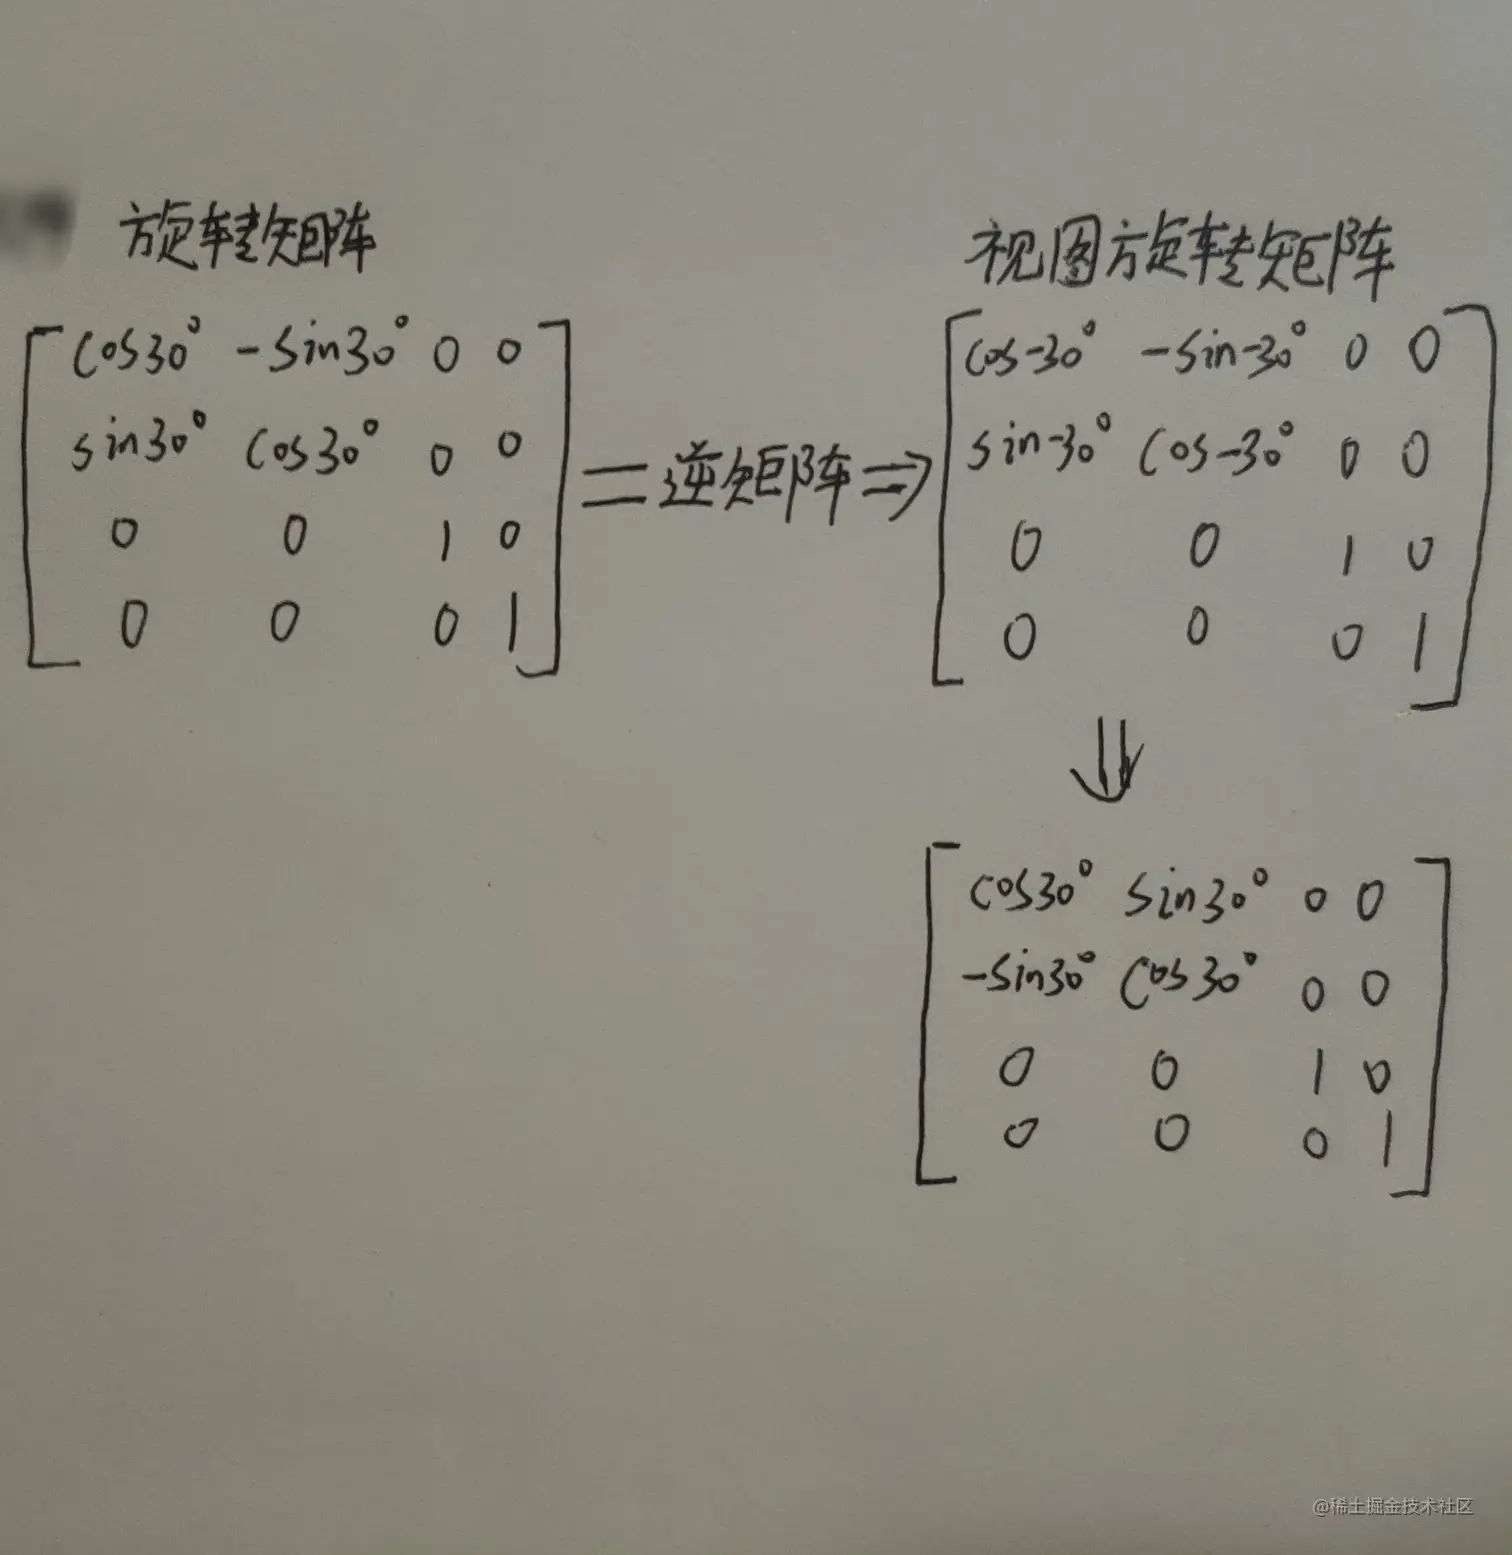 旋转矩阵
cos30° -sin30° 0 0
sin30° cos30° 0 0
0 0 1 0
0 0 0 1
=逆矩阵⇒
视图旋转矩阵
cos-30° -sin-30° 0 0
sin-30° cos-30° 0 0
0 0 1 0
0 0 0 1
⇓
cos30° sin30° 0 0
-sin30° cos30° 0 0
0 0 1 0
0 0 0 1
@稀土掘金技术社区